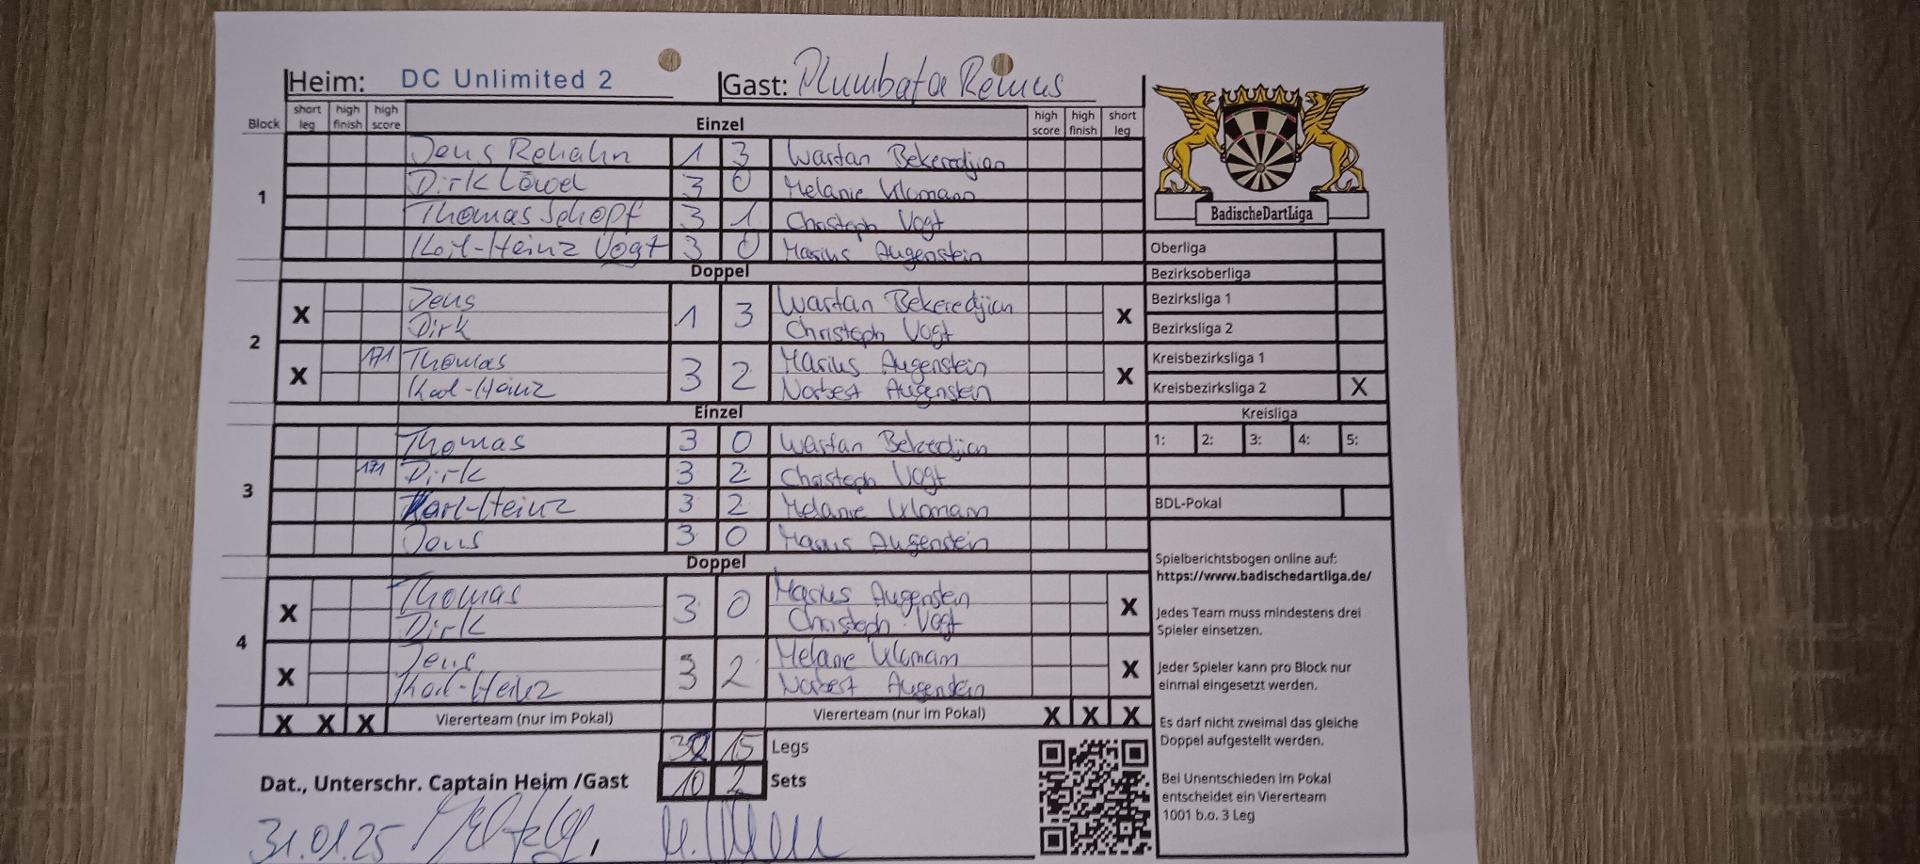 Heim: DC Unlimited 2 Gast: Plumbata Remus
Block short leg high finish high score Einzel high score high finish short leg
1
Jens Rehahn 1 3 Wartan Bekeredjian
Dirk Löwel 3 0 Melanie Ulomann
Thomas Schopf 3 1 Christoph Vogt
Karl-Heinz Vogt 3 0 Marius Augenstein
Doppel
2
X Jens 1 3 Wartan Bekeredjian X
Dirk Christoph Vogt
X 171 Thomas 3 2 Marius Augenstein X
Karl-Heinz Norbert Augenstein
Einzel
3
Thomas 3 0 Wartan Bekeredjian
171 Dirk 3 2 Christoph Vogt
Karl-Heinz 3 2 Melanie Ulomann
Jens 3 0 Marius Augenstein
Doppel
4
X Thomas 3 0 Marius Augenstein X
Dirk Christoph Vogt
X Jens 3 2 Melanie Ulomann X
Karl-Heinz Norbert Augenstein
X X X Viererteam (nur im Pokal) Viererteam (nur im Pokal) X X X
32 15 Legs
10 2 Sets
Dat., Unterschr. Captain Heim /Gast
31.01.25
BadischeDartLiga
Oberliga
Bezirksoberliga
Bezirksliga 1
Bezirksliga 2
Kreisbezirksliga 1
Kreisbezirksliga 2 X
Kreisliga
1: 2: 3: 4: 5:
BDL-Pokal
Spielberichtsbogen online auf:
https://www.badischedartliga.de/
Jedes Team muss mindestens drei
Spieler einsetzen.
Jeder Spieler kann pro Block nur
einmal eingesetzt werden.
Es darf nicht zweimal das gleiche
Doppel aufgestellt werden.
Bei Unentschieden im Pokal
entscheidet ein Viererteam
1001 b.o. 3 Leg